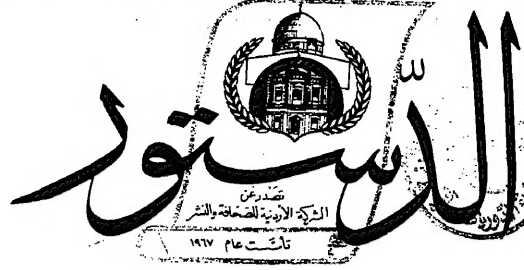 الدّستور
تصدر عن
الشركة الأردنية للصحافة والنشر
تأسّست عام ١٩٦٧